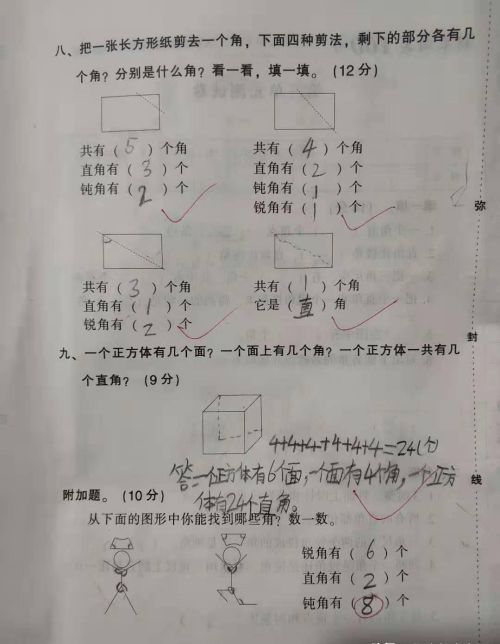 八、把一张长方形纸剪去一个角，下面四种剪法，剩下的部分各有几
个角？分别是什么角？看一看，填一填。（12分）
共有（5）个角 共有（4）个角
直角有（3）个 直角有（2）个
钝角有（2）个 钝角有（1）个
锐角有（1）个
弥
共有（3）个角 共有（1）个角
直角有（1）个 它是（直）角
锐角有（2）个
封
九、一个正方体有几个面？一个面上有几个角？一个正方体一共有几
个直角？（9分）
4+4+4+4+4+4=24(个)
答：一个正方体有6个面，一个面有4个角，一个正方
体有24个直角。
线
附加题。（10分）
从下面的图形中你能找到哪些角？数一数。
锐角有（6）个
直角有（2）个
钝角有（8）个